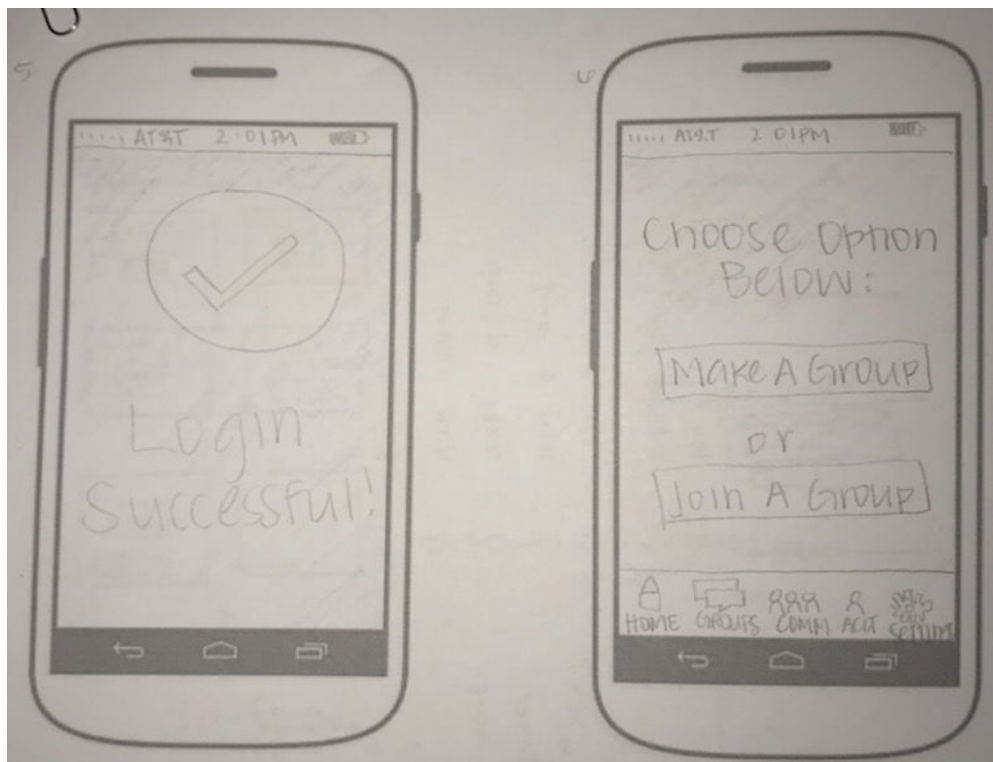 5
AT&T 2:01PM
Login
Successful!
6
AT&T 2:01PM
Choose Option
Below:
Make A Group
or
Join A Group
HOME GROUPS COMM ACCT